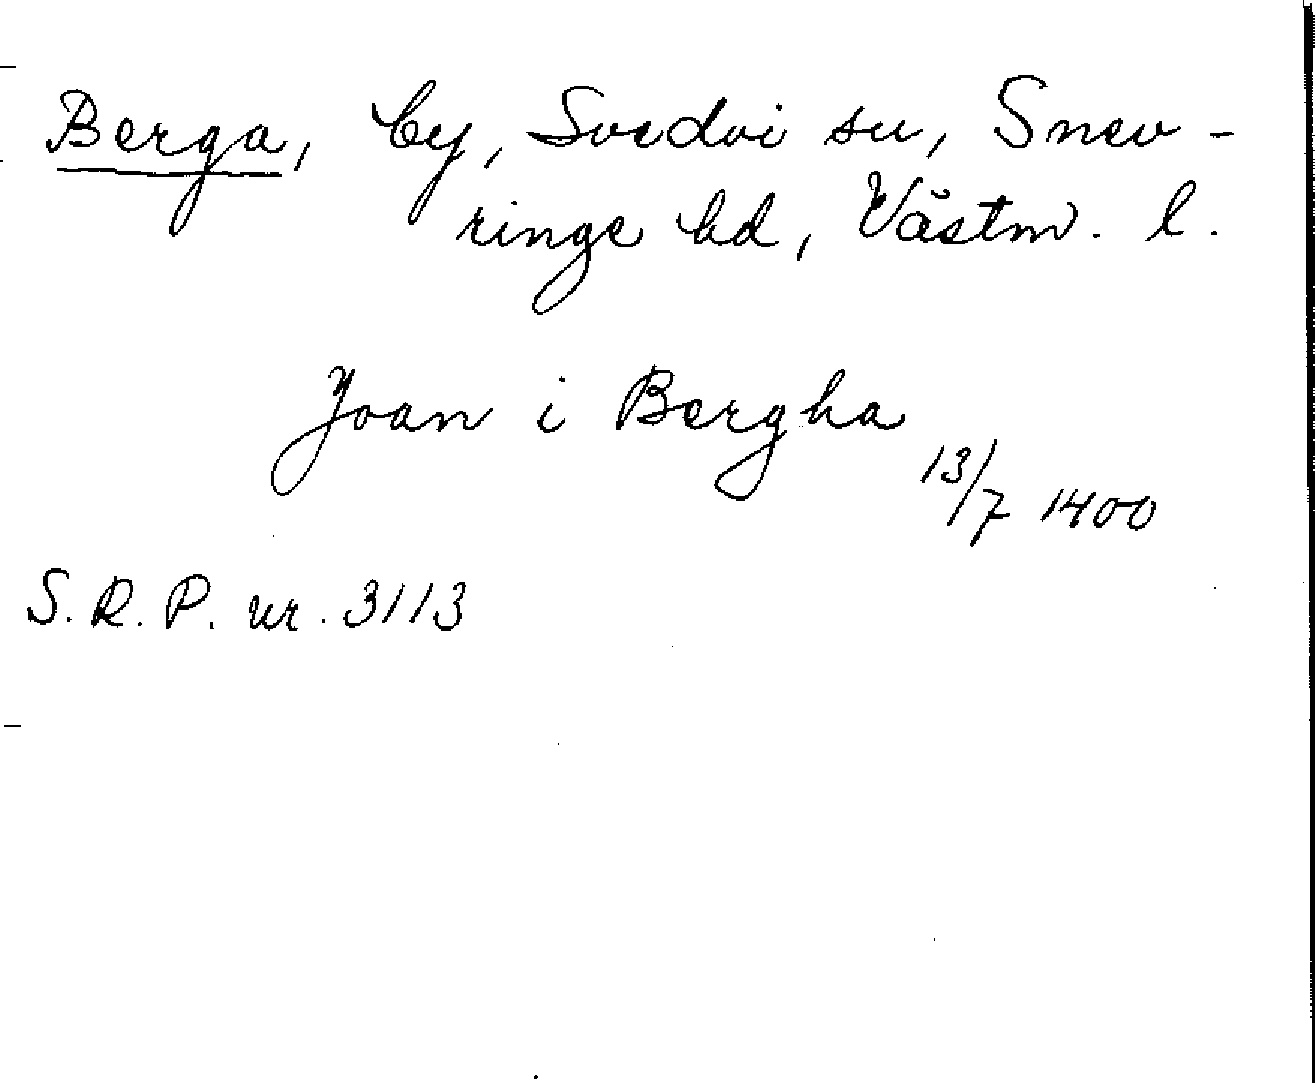 Berga, by, Svedvi sn, Snev-
ringe hd, Västm. l.
Joan i Bergha
13/7 1400
S. R. P. nr. 3113